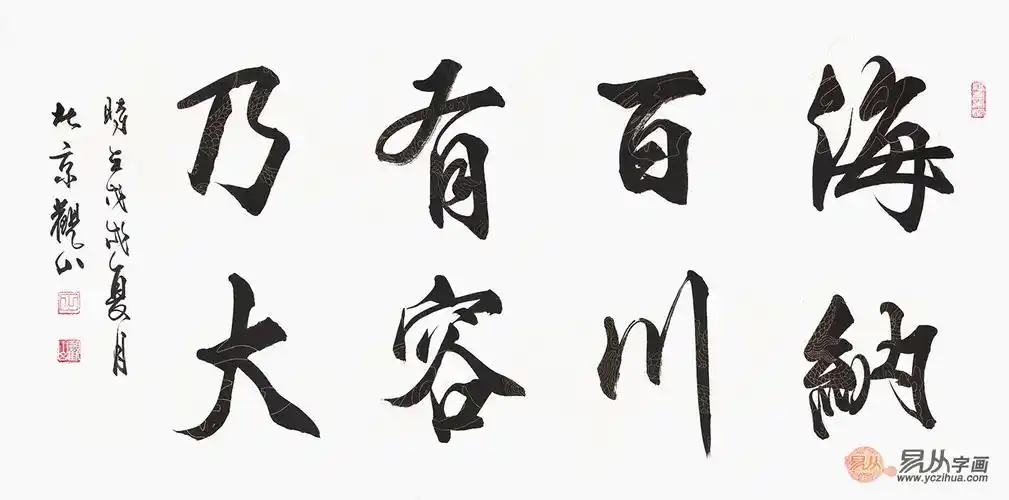 海納
百川
有容
乃大
時在戊戌夏月
於京觀山
易从字画
www.yczihua.com